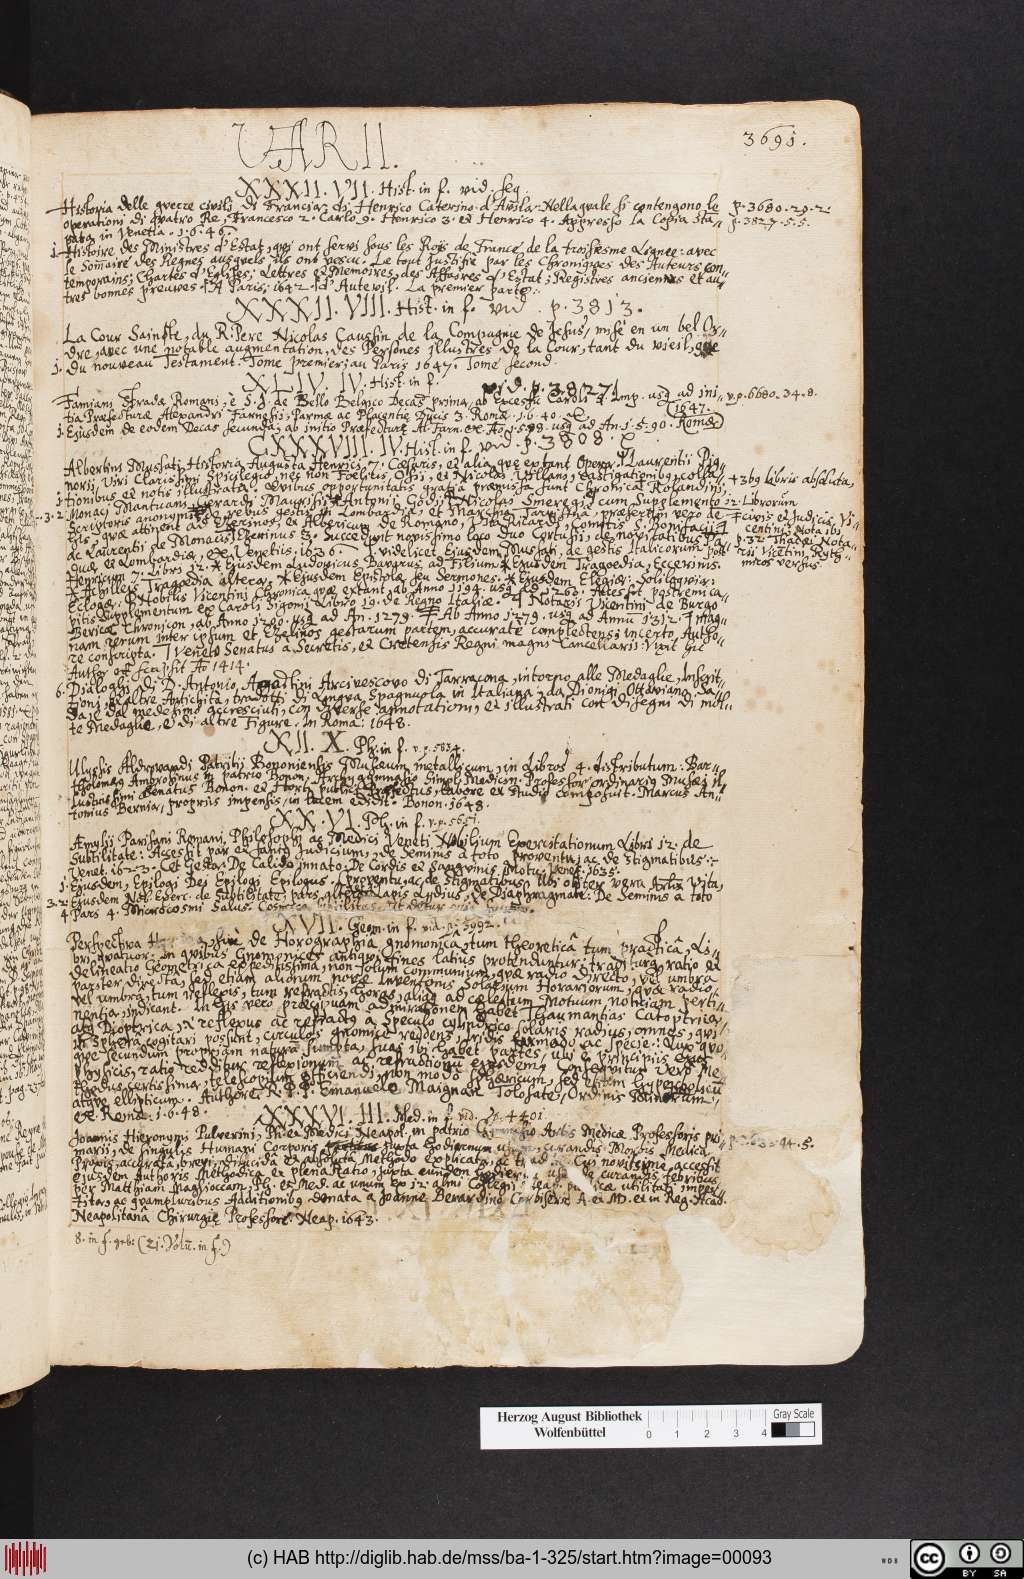 VARII.
3691.
XXXII. VII. Hist. in f. vid. seq.
Historia delle guerre civili di Francia, di Henrico Caterino d'Avila: Nella quale si contengono le
operationi di quatro Re, Francesco 2. Carlo 9. Henrico 3. et Henrico 4. Appresso la Copia Sta-
para in Venetia. 1646.
p. 3680. 29. 2.
p. 3827. 5. 5.
1. Histoire des Ministres d'Estat, qui ont servi sous les Rois de France de la troisiesme Lignee: avec
le Sommaire des Regnes ausquels ils ont vescu. Le tout Justifie par les Chroniques des Auteurs con-
temporains; Chartes d'Eglises; Lettres et Memoires, des Affaires d'Estat; Registres anciennes et au-
tres bonnes preuves. A Paris; 1642. d'Auteuil. La premier parte.
XXXII. VIII. Hist. in f. vid. p. 3813.
La Cour Sainste, du R. Pere Nicolas Caussin de la Compagnie de Jesus, mise en un bel Or-
dre, avec une notable augmentation, des Persones illustres de la Cour, tant du vieil, que
1. du nouveau Testament. Tome premier; au Paris 1647. Tome second.
XLIV. IV. Hist. in f. vid. p. 3827.
Famiani Strada Romani, è S. J. de Bello Belgico Decas prima, ab Excessu Caroli V. Imp. usq ad ini-
tia Præfecturæ Alexandri Farnesii, Parmæ ac Placentiæ Ducis 3. Romæ. 1640.
1. Ejusdem de eodem Decas secunda, ab initio Præfecturæ Al. Farn. ex Ao. 1578. usq ad An. 1590. Romæ
1647.
v. p. 6680. 34. 8.
CXXXVIII. IV. Hist. in f. vid. p. 3808.
Albertini Mussati, Historia Augusta Henrici 7. Cæsaris, et alia, quæ extant Opera, Laurentii Pig-
norii, Viri Clarissimi Spicilegio; nec non Foelicis Osii, et Nicolai Villani, castigationibus, colla-
1. tionibus et notis illustrata. Quibus opportunitatis gratia præmissa sunt Chronica Rolandini,
Monaci Mantuani, Gerardi Maurisii, Antonii Godii, Nicolai Smeregi, cum Supplemento
3. 2. Scriptoris anonymi, de rebus gestis in Lombardia, et Marchia Tarvisina, præsertim vero de
his, quæ attinent ad Eccerinos, et Albericum de Romano, Vita Ricardi, comitis S. Bonifacii.
ac Laurentii de Monacis Ezerinus 3. Succedunt novissimo loco duo Cortusii; de novitatibus Pa-
duæ et Lombardiæ, ex Venetiis, 1636. videlicet Ejusdem Mussati, de gestis Italicorum post
Henricum 7. Libri 12. Ejusdem Ludovicus Bavarus ad Filium. Ejusdem Tragoedia, Eccerinis.
Achilleis Tragoedia altera. Ejusdem Epistolæ seu Sermones. Ejusdem Elegiæ: Soliloquia:
Eclogæ. Nobilis Vicentini Chronica quæ extant, ab Anno 1194. usq ad 1260. Accessit postremica-
pitis Supplementum ex Caroli Sigonii Libro 19. de Regno Italiæ. Notarii Vicentini de Burgo
Bericæ Chronicon, ab Anno 1200. usq ad An. 1279. Ab Anno 1279. usq ad Annu 1312. mag-
nam rerum inter ipsum et Ezelinos gestarum partem, accurate complectens, incerto Autho-
re conscripta. Veneto Senatus a Secretis, et Cretensis Regni magni Cancellarii: Vixit hic
Author et scripsit Ao 1414.
+ 3bq libris absoluta,
12. Librorum
civis et Judicis Vi-
centini, Nota ibi
p. 32. Thadæi Nota-
rii Vicentini Ryth-
micos versus.
6. Dialoghi di D. Antonio, Agostini Arcivescovo di Tarracona, intorno alle Medaglie, Inscrit-
tioni, et altre Antichita, tradotti di Lingua Spagnuola in Italiana, da Dionigi Ottaviano Sa-
da, e dal medesimo accresciuti, con diverse annotationi, et illustrati con disegni di mol-
te Medaglie, e di altre Figure. In Roma. 1648.
XII. X. Ph. in f. v. p. 5834.
Ulyssis Aldrovandi Patritii Bononiensis Musæum metallicum, in Libros 4. distributum: Bar-
tholomæus Ambrosinus in patrio Bonon. Archigymnasio Simpl. Medicin. Professor ordinarius Musæi il-
lustrissimi Senatus Bonon. et Horti publici Præfectus, labore et studio composuit. Marcus An-
tonius Bernia, propriis impensis, in lucem edidit. Bonon. 1648.
XX. VI. Ph. in f. v. p. 5651.
Æmylii Parisani Romani, Philosophi ac Medici Veneti Nobilium Exercitationum Libri 12. de
Subtilitate: Accessit par est sanus judicium, de Seminis a toto proventu, ac de Stigmatibus.
Venet. 1623. De Calido innato. De Cordis et Sanguinis Motu. Venet. 1635.
1. Ejusdem, Epilogi Dei Epilogi Epilogus. proventu, ac de Stigmatibus Ubi obiter vera Artus Vita,
3. 2. Ejusdem Nob. Exerc. de Subtilitate, pars altera. Lapis Lydius, De Diaphragmate. De Seminis a toto
4 Pars 4. Microcosmi Salus.
XVII. Geom. in f. vid. p. 5992.
Perspectiva Horaria, sive de Horographia gnomonica, tum theoretica tum practica, Li-
bri quatuor. In quibus Gnomonices antiqui fines latius protenduntur: traditurq ratio et
delineatio Geometrica expeditissima, non solum communium, quæ radio directo, vel umbra
pariter directa, sed etiam aliorum novæ Inventionis Solarium Horariorum, quæ radio,
vel umbra, tum reflexis, tum refractis, horas, aliaq ad cælestium Motuum notitiam perti-
nentia, indicant. In his vero præcipuam admirationem habet Thaumantias Catoptrica,
atq Dioptrica, et reflexus ac refractus a Speculo cylindrico Solaris radius, omnes, qui
in Sphæra cogitari possunt, circulos gnomice reddens, Iridis formado ac specie: Quæ quo-
que secundum propriam naturam sumpta, suas ibi habet partes, ubi e principiis evos
Physicis, ratio redditur reflexionum ac refractionu ejusdemq
thodus certissima, telescopium efficiendi, non modo sphæricum, sed etiam hyperbolicu
atque ellipticum. Authore R. P. F. Emanuele Maignan Tolosate, Ordinis Minorum.
ex Romæ. 1648.
XXXVI. III. Med. in f. vid. p. 4401.
Joannis Hieronymi Pulverini, Ph. et Medici Neapol. in patrio Gymnasio Artis Medicæ Professoris pri-
marii, de singulis Humani Corporis juxta hodiernum usum, curandis Morbis Medica
Praxis, accurata, brevi, dilucida et absoluta Methodo explicata, ac trad Cui novissime accessit
ejusdem Authoris Methodica et plena Ratio, juxta eundem curandis Febribus,
per Matthiam Magrioccam, Ph. et Med. ac unum ex 12. almi Collegii Neap. publicæ utilitati imper-
tita, ac quampluribus Additionibus donata a Joanne Berardino Corbisiero A. et M. D. et in Reg. Acad.
Neapolitana Chirurgiæ Professore. Neap. 1643.
44. 5.
8. in f. geb. (21. Volu. in f.)
Herzog August Bibliothek
Wolfenbüttel
0 1 2 3 4
Gray Scale
(c) HAB http://diglib.hab.de/mss/ba-1-325/start.htm?image=00093
WDB
cc BY SA